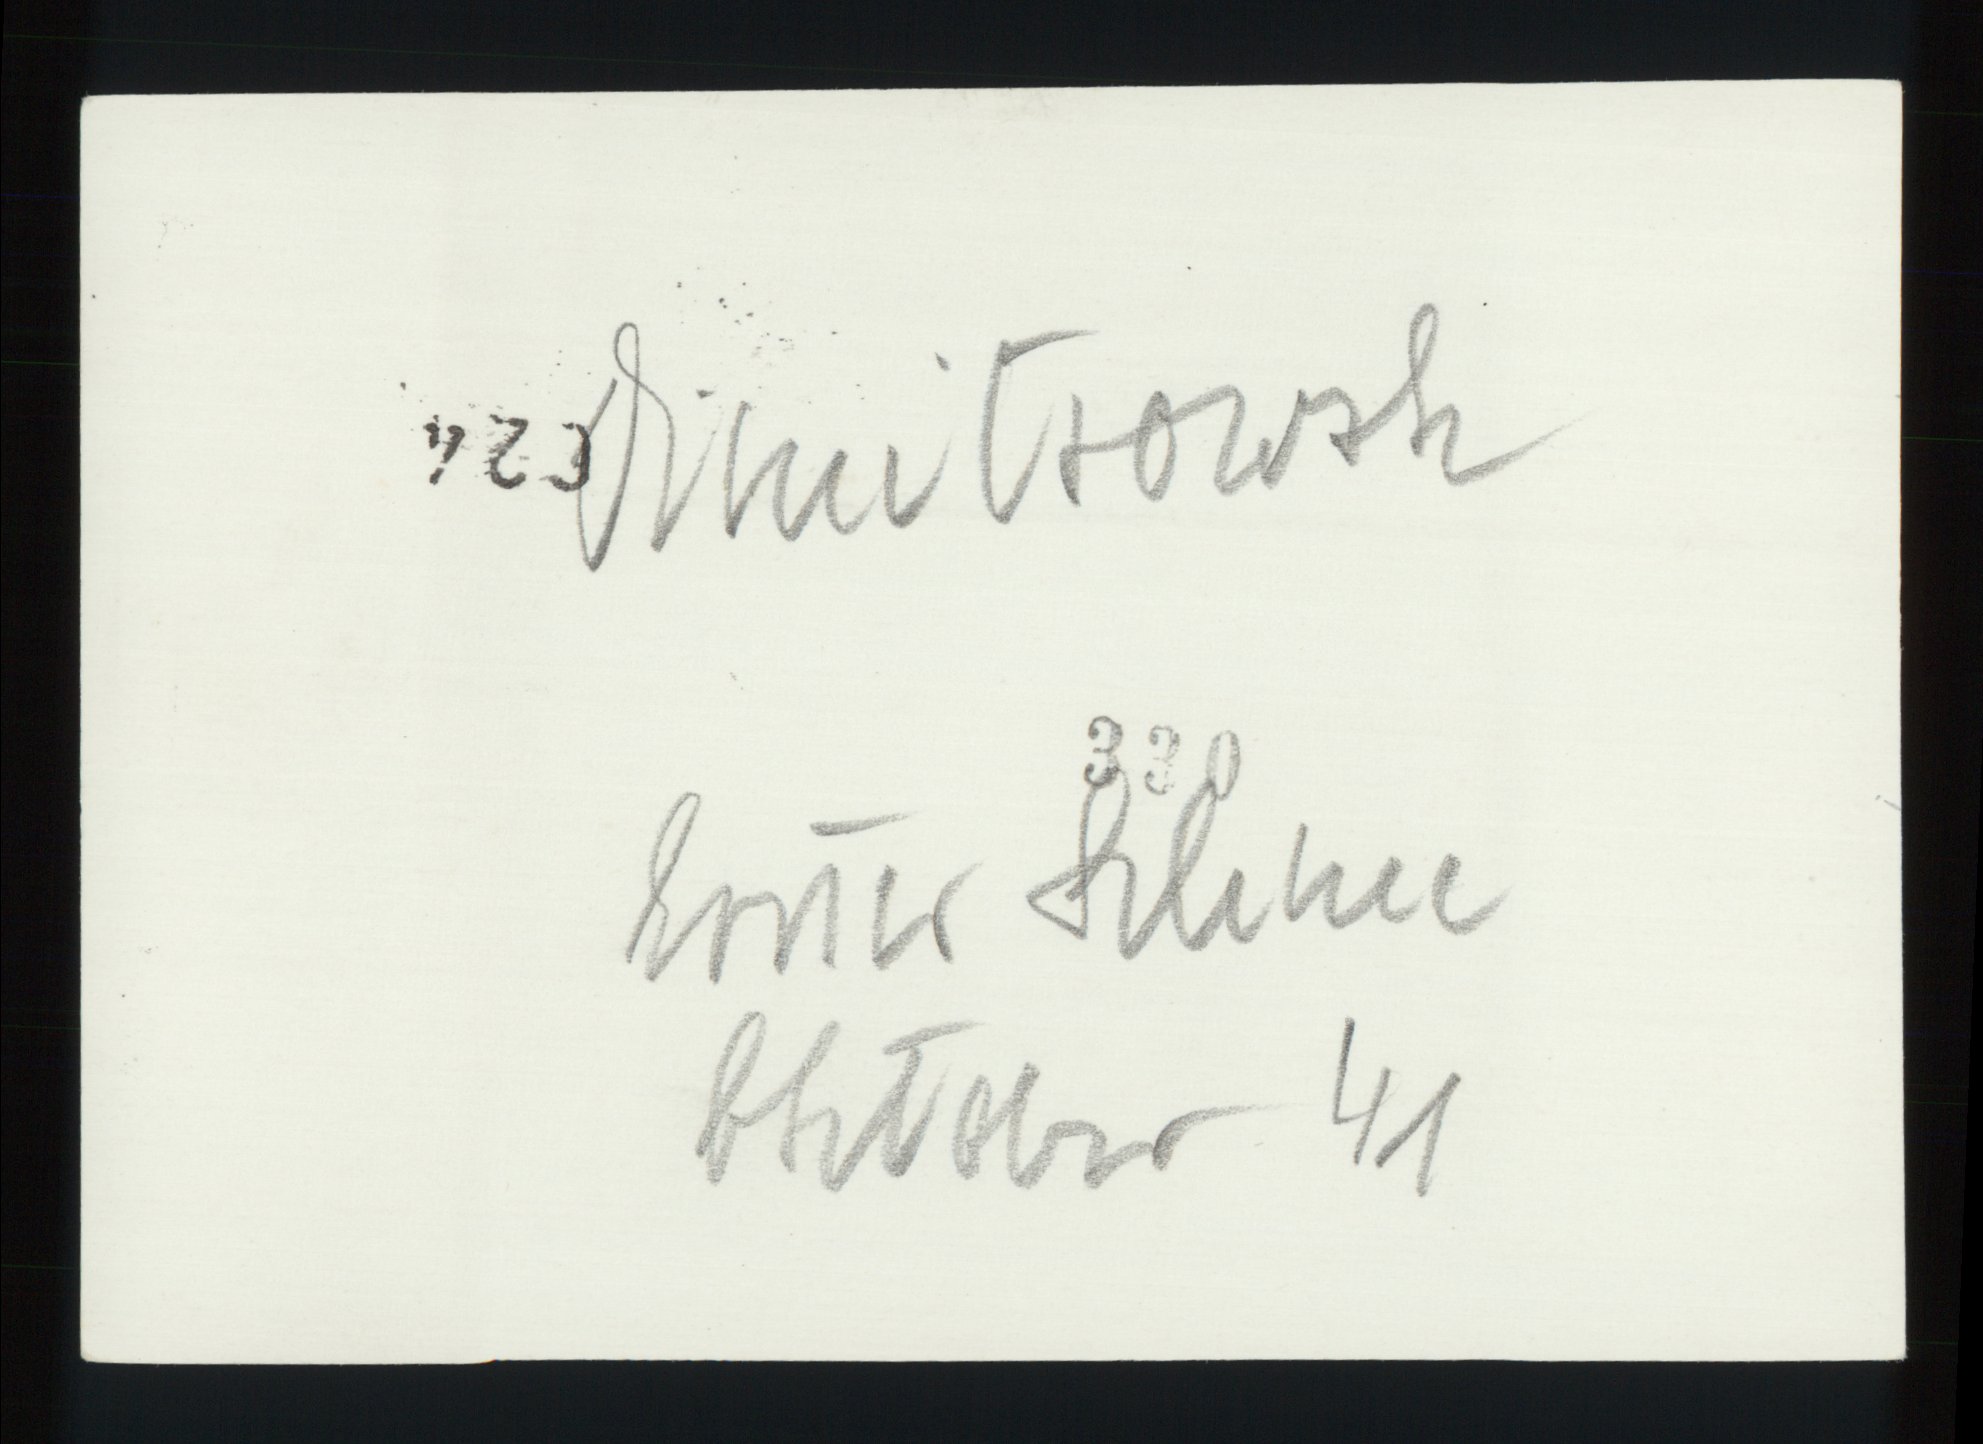 Dimitrowsk
330
Erster Schnee
Oktober 41